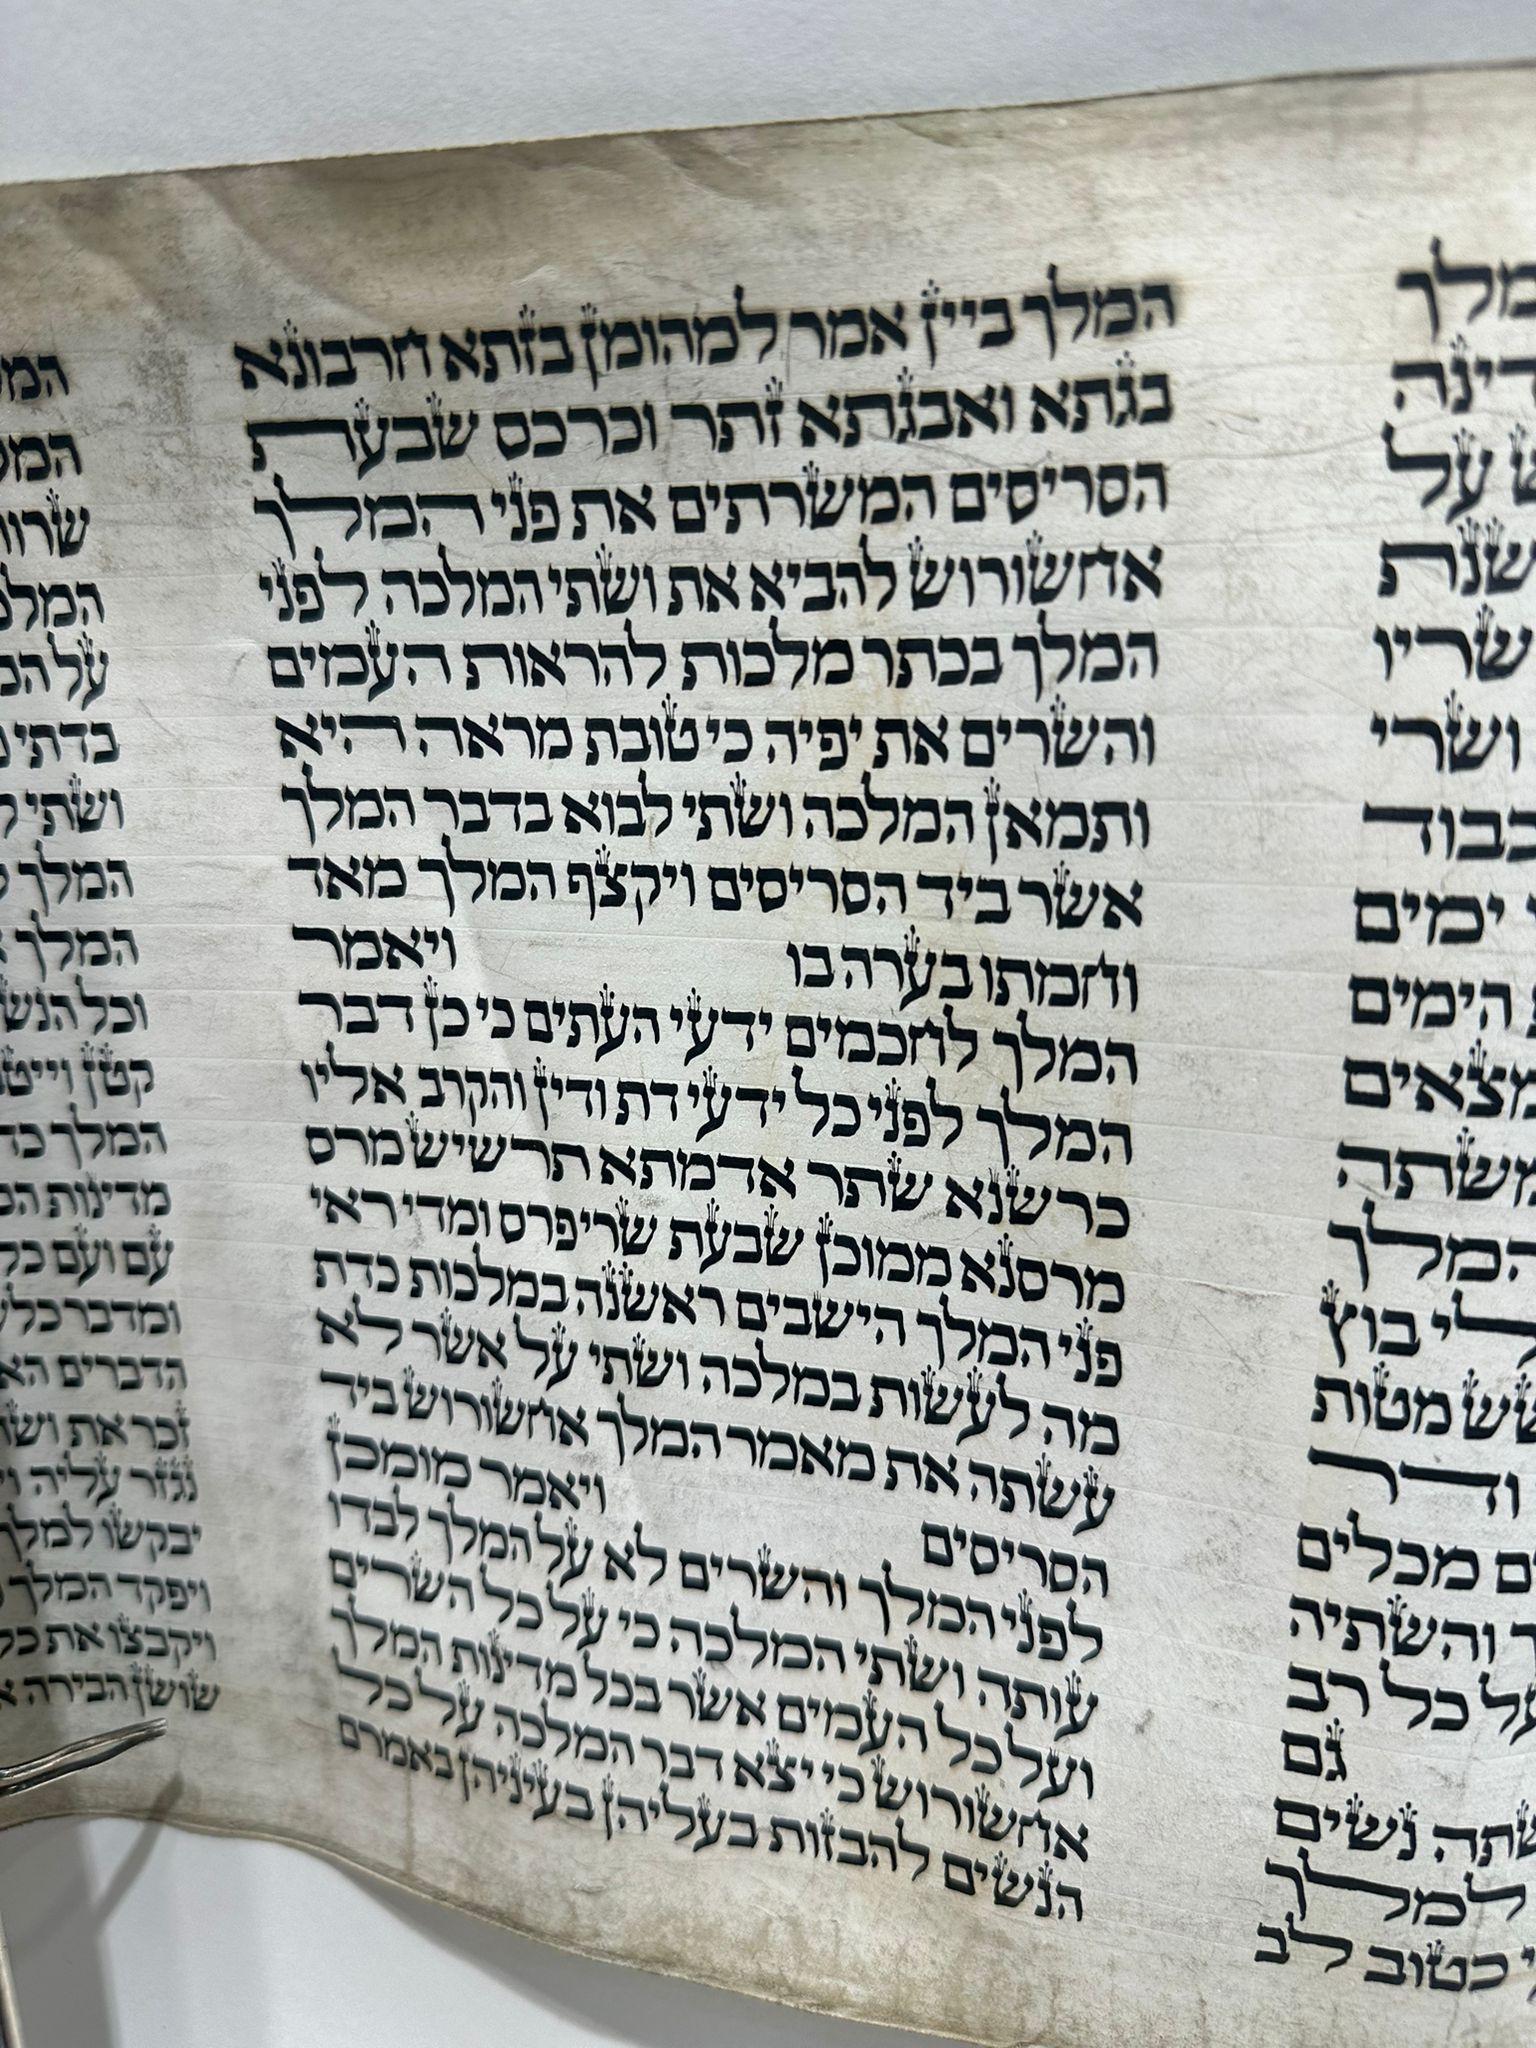 מלך
דינה
על
שנת
שריו
ושרי
כבוד
ימים
הימים
מצאים
משתה
המלך
בוץ
שש מטות
ודר
מכלים
והשתיה
על כל רב
גם
נשים
למלך
כטוב לב
המלך ביין אמר למהומן בזתא חרבונא
בגתא ואבגתא זתר וכרכס שבעת
הסריסים המשרתים את פני המלך
אחשורוש להביא את ושתי המלכה לפני
המלך בכתר מלכות להראות העמים
והשרים את יפיה כי טובת מראה היא
ותמאן המלכה ושתי לבוא בדבר המלך
אשר ביד הסריסים ויקצף המלך מאד
וחמתו בערה בו ויאמר
המלך לחכמים ידעי העתים כי כן דבר
המלך לפני כל ידעי דת ודין והקרב אליו
כרשנא שתר אדמתא תרשיש מרס
מרסנא ממוכן שבעת שרי פרס ומדי ראי
פני המלך הישבים ראשנה במלכות כדת
מה לעשות במלכה ושתי על אשר לא
עשתה את מאמר המלך אחשורוש ביד
הסריסים ויאמר מומכן
לפני המלך והשרים לא על המלך לבדו
עותה ושתי המלכה כי על כל השרים
ועל כל העמים אשר בכל מדינות המלך
אחשורוש כי יצא דבר המלכה על כל
הנשים להבזות בעליהן בעיניהן באמרם
המל
המל
שרו
המלכ
על
בדתי
ושתי
המלך
המלך
וכל הנש
קטן
המלך
מדינות
עם ועם
ומדבר
הדברים
זכר את
נגזר עליה
יבקשו למלך
ויפקד המלך
ויקבצו את כל
שושן הבירה